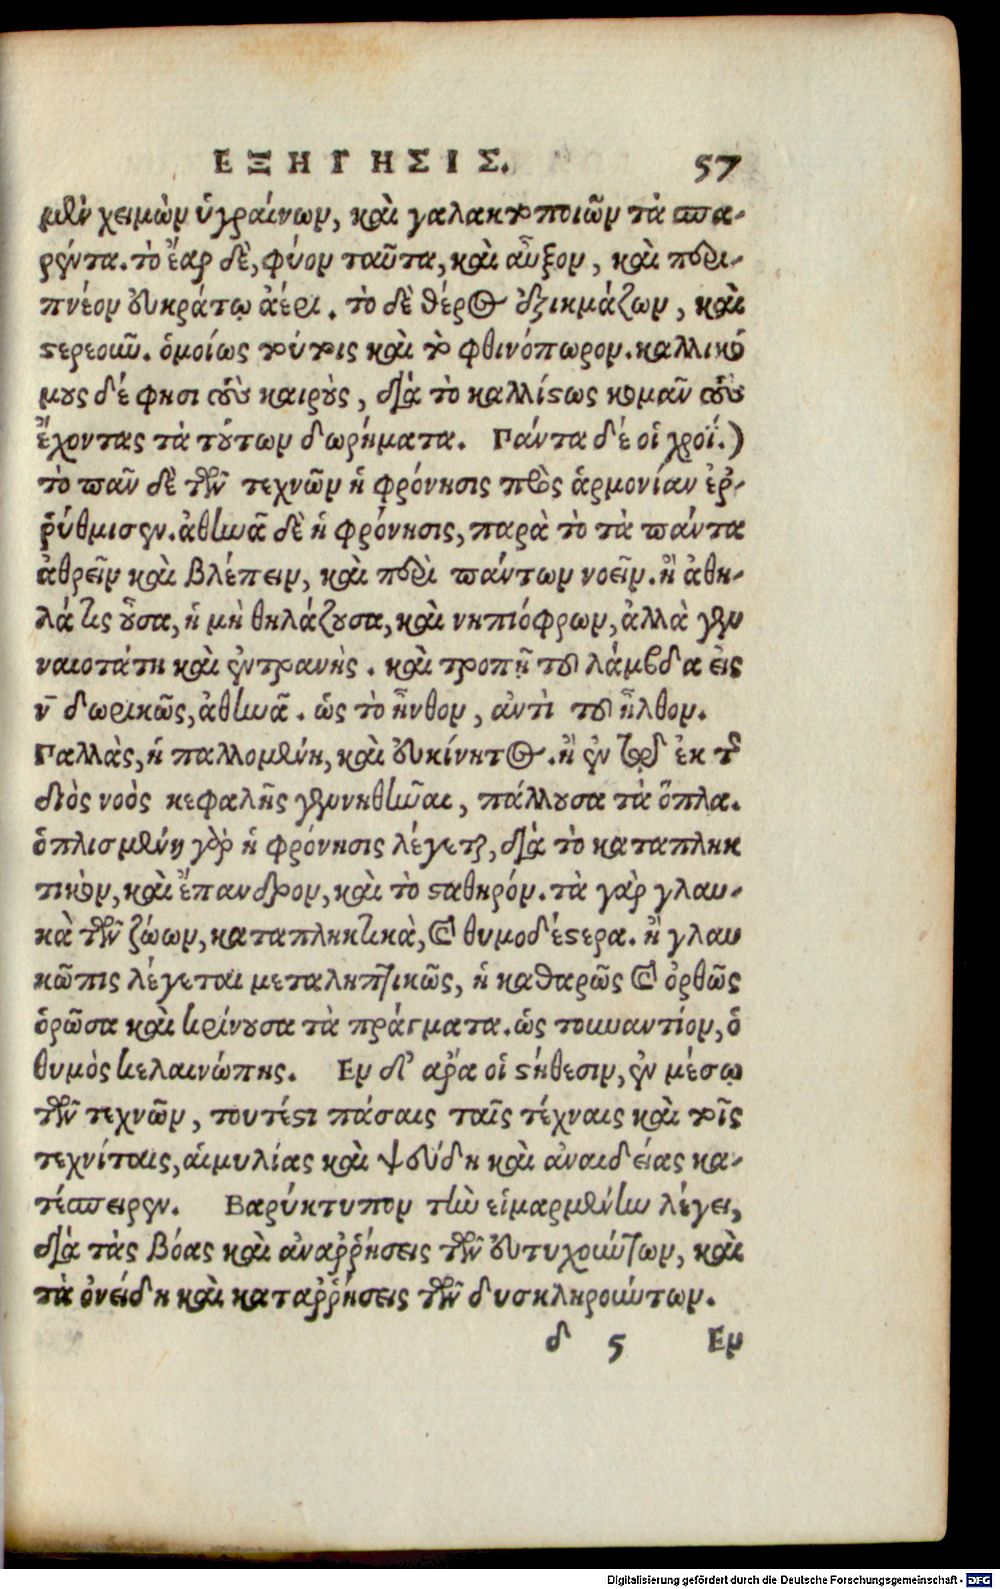 ΕΞΗΓΗΣΙΣ. 57
μὲν χειμὼν ὑγραίνων, καὶ γαλακτοποιῶν τὰ σπα-
ρέντα. τὸ ἔαρ δὲ, φύον ταῦτα, καὶ αὖξον, καὶ περι-
πνέον εὐκράτῳ ἀέρι. τὸ δὲ θέρος ἐξικμάζων, καὶ
στερεοῦν. ὁμοίως τούτοις καὶ τὸ φθινόπωρον. καλλικό
μους δέ φησι τοὺς καιροὺς, διὰ τὸ καλλίστως κομᾶν τοὺς
ἔχοντας τὰ τούτων δωρήματα. Πάντα δέ οἱ χροΐ.)
τὸ πᾶν δὲ τῶν τεχνῶν ἡ φρόνησις πρὸς ἁρμονίαν ἐῤ-
ῥύθμισεν. ἀθηνᾶ δὲ ἡ φρόνησις, παρὰ τὸ τὰ πάντα
ἀθρεῖν καὶ βλέπειν, καὶ περὶ πάντων νοεῖν. ἢ ἀθη-
λά τις οὖσα, ἡ μὴ θηλάζουσα, καὶ νηπιόφρων, ἀλλὰ γεν
ναιοτάτη καὶ ἐντρανὴς. καὶ τροπῇ τοῦ λάμβδα εἰς
ν̄ δωρικῶς, ἀθηνᾶ. ὡς τὸ ἦνθον, ἀντὶ τοῦ ἦλθον.
Παλλὰς, ἡ παλλομένη, καὶ εὐκίνητος. ἢ ἐν τῷ ἐκ τῆς
διὸς νοὸς κεφαλῆς γεννηθῆναι, πάλλουσα τὰ ὅπλα.
ὁπλισμένη γὰρ ἡ φρόνησις λέγεται, διὰ τὸ καταπληκ
τικὸν, καὶ ἔπανδρον, καὶ τὸ σταθηρόν. τὰ γὰρ γλαυ-
κὰ τῶν ζώων, καταπληκτικὰ, καὶ θυμοδέστερα. ἢ γλαυ
κῶπις λέγεται μεταληπτικῶς, ἡ καθαρῶς καὶ ὀρθῶς
ὁρῶσα καὶ κρίνουσα τὰ πράγματα. ὡς τοὐναντίον, ὁ
θυμὸς κελαινώπης. Εν δ' ἄρα οἱ στήθεσιν, ἐν μέσῳ
τῶν τεχνῶν, τουτέστι πάσαις ταῖς τέχναις καὶ τοῖς
τεχνίταις, αἱμυλίας καὶ ψεύδη καὶ ἀναιδείας κα-
τέσπειρεν. Βαρύκτυπον τὴν εἱμαρμένην λέγει,
διὰ τὰς βόας καὶ ἀναῤῥήσεις τῶν εὐτυχούντων, καὶ
τὰ ὀνείδη καὶ καταῤῥήσεις τῶν δυσκληρούντων.
δ 5 Εν
Digitalisierung gefördert durch die Deutsche Forschungsgemeinschaft - DFG